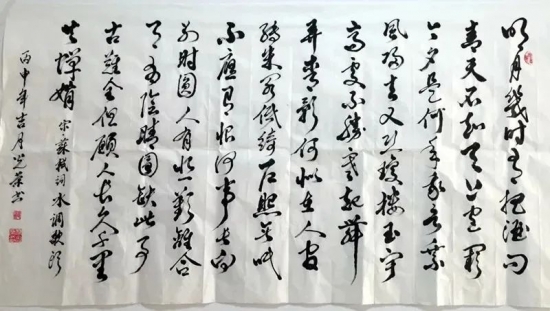 明月几时有把酒问
青天不知天上宫阙
今夕是何年我欲乘
风归去又恐琼楼玉宇
高处不胜寒起舞
弄清影何似在人间
转朱阁低绮户照无眠
不应有恨何事长向
别时圆人有悲欢离合
月有阴晴圆缺此事
古难全但愿人长久千里
共婵娟 宋苏轼词水调歌头
丙申年吉月